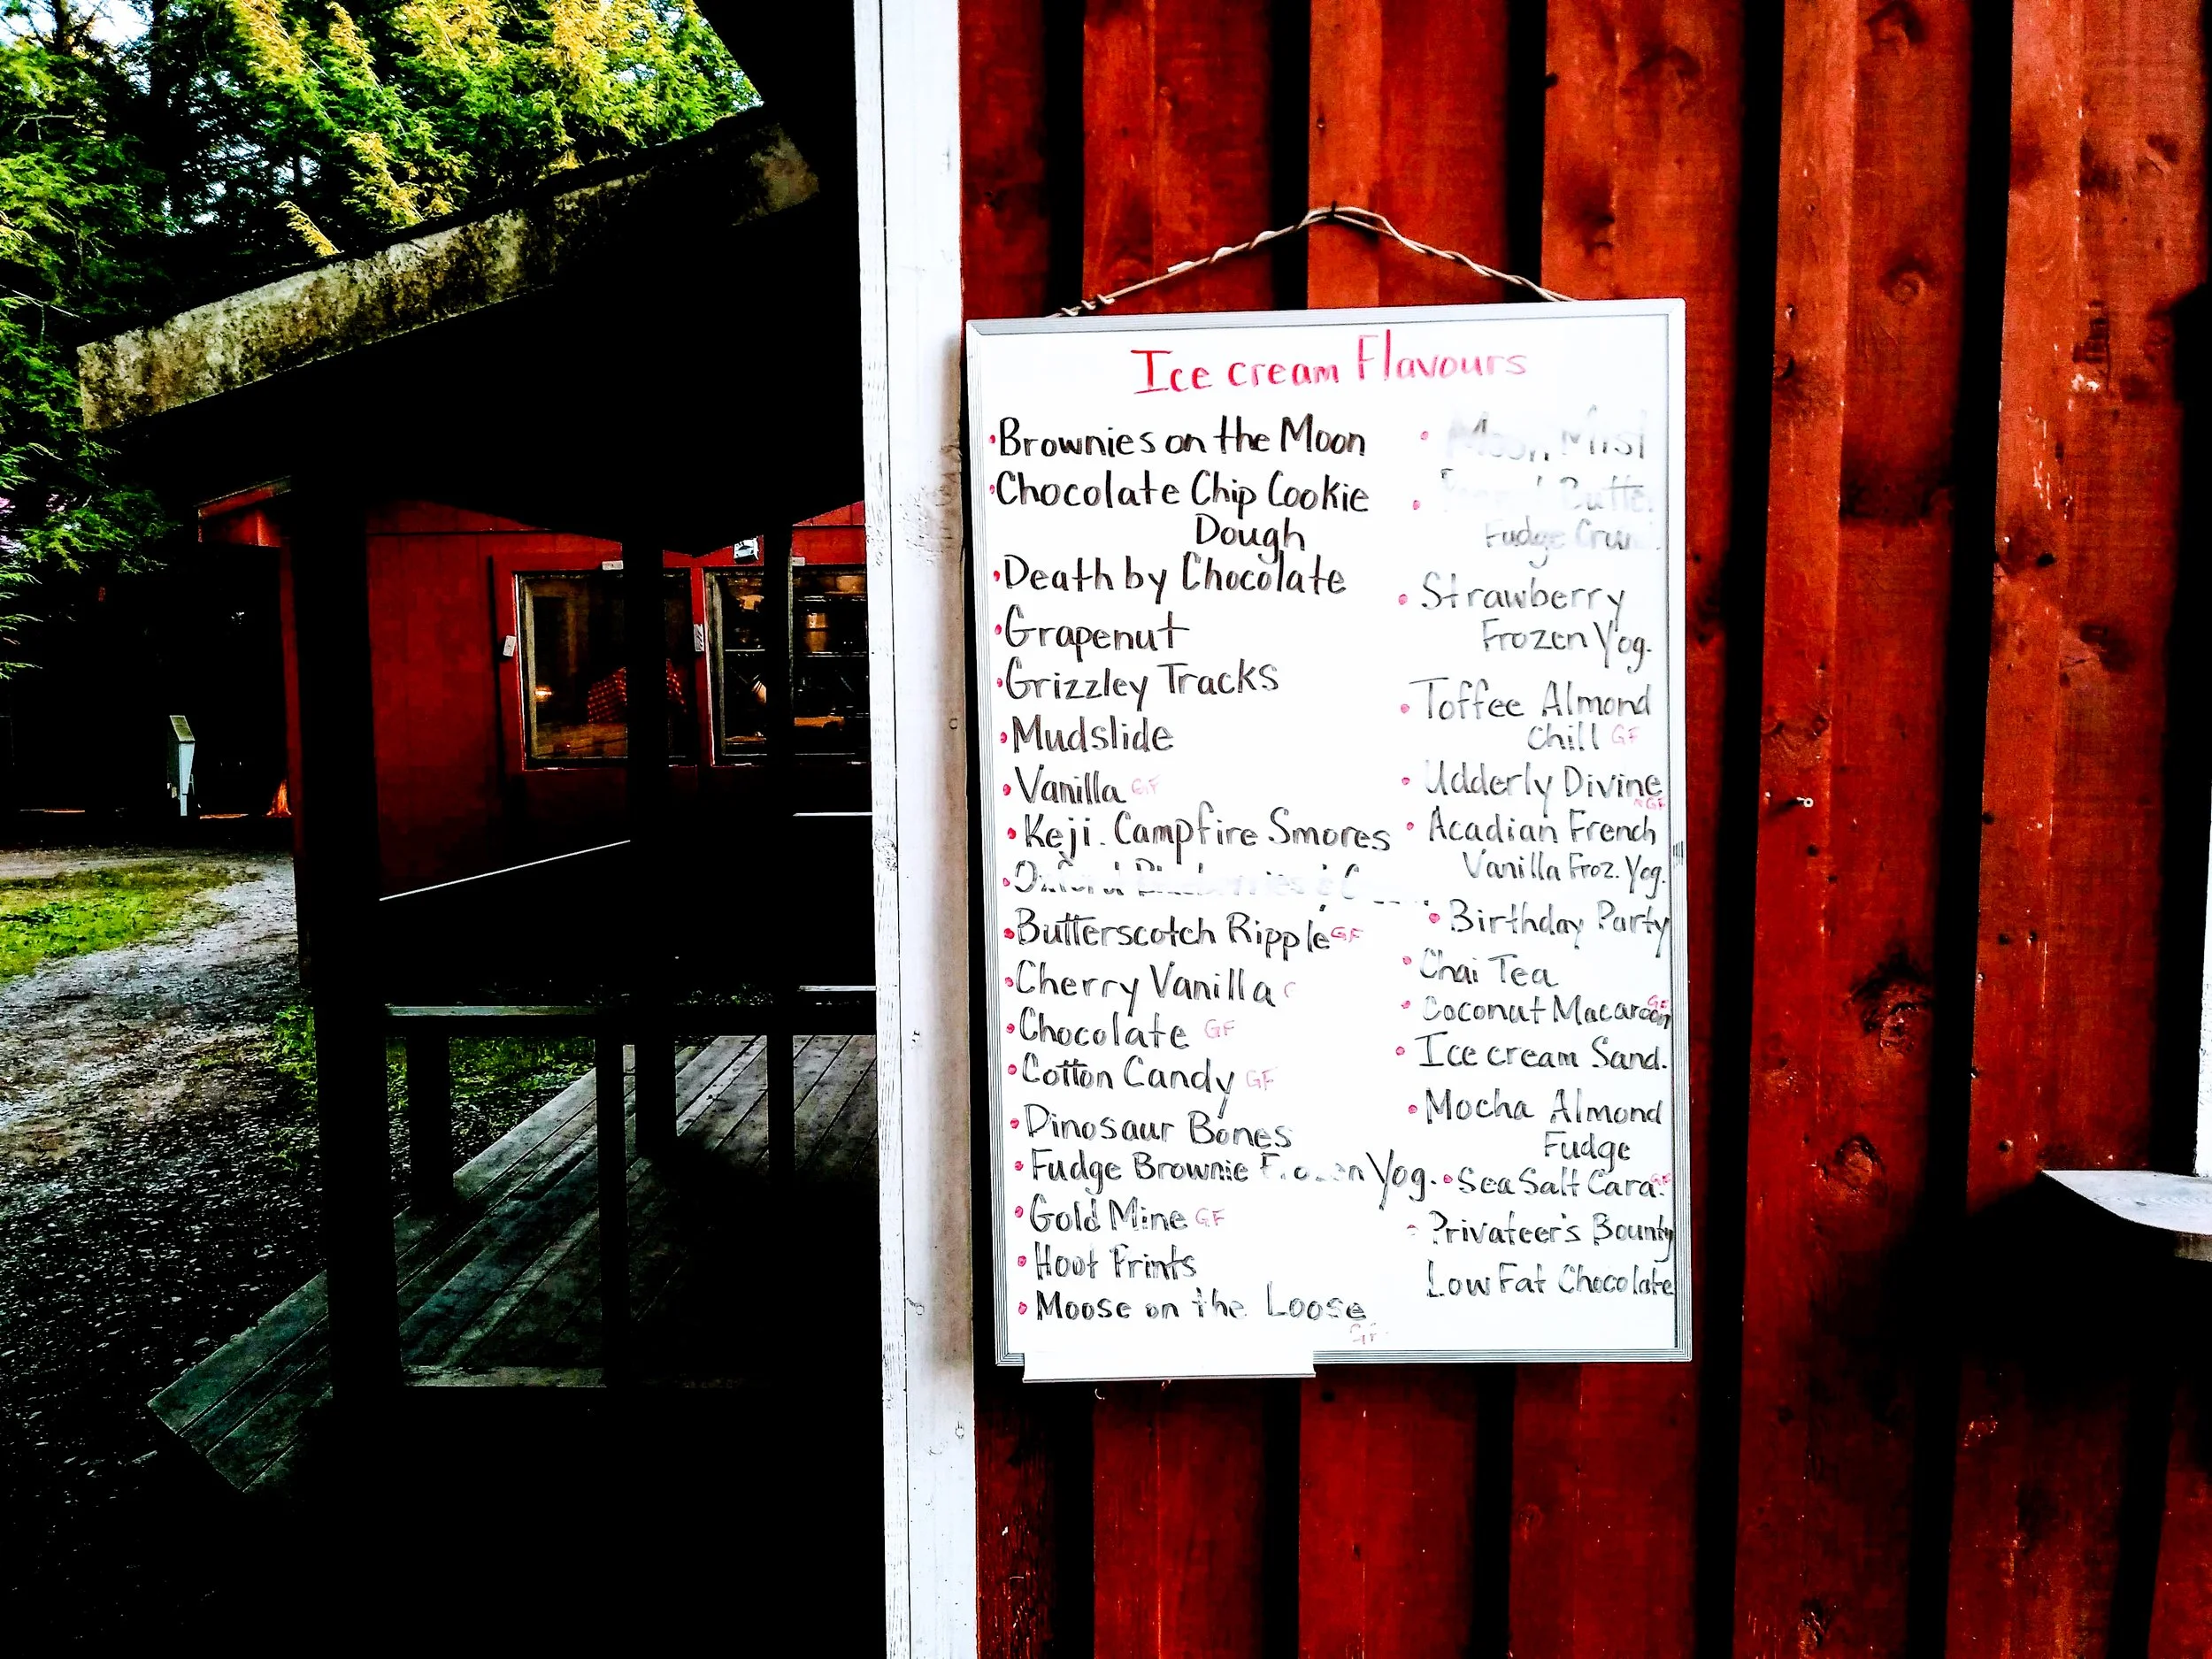 Ice cream Flavours
•Brownies on the Moon
•Chocolate Chip Cookie
Dough
•Death by Chocolate
•Grapenut
•Grizzley Tracks
•Mudslide
•Vanilla GF
•Keji. Campfire Smores
•Butterscotch Ripple GF
•Cherry Vanilla
•Chocolate GF
•Cotton Candy GF
•Dinosaur Bones
•Fudge Brownie Frozen Yog.
•Gold Mine GF
•Hoof Prints
•Moose on the Loose
GF
•Moon Mist
•
Fudge
•Strawberry
Frozen Yog.
•Toffee Almond
Chill GF
•Udderly Divine
GF
•Acadian French
Vanilla Froz. Yog.
•Birthday Party
•Chai Tea
•Coconut Macaroon GF
•Ice cream Sand.
•Mocha Almond
Fudge
•Sea Salt Cara. GF
•Privateer's Bounty
Low Fat Chocolate